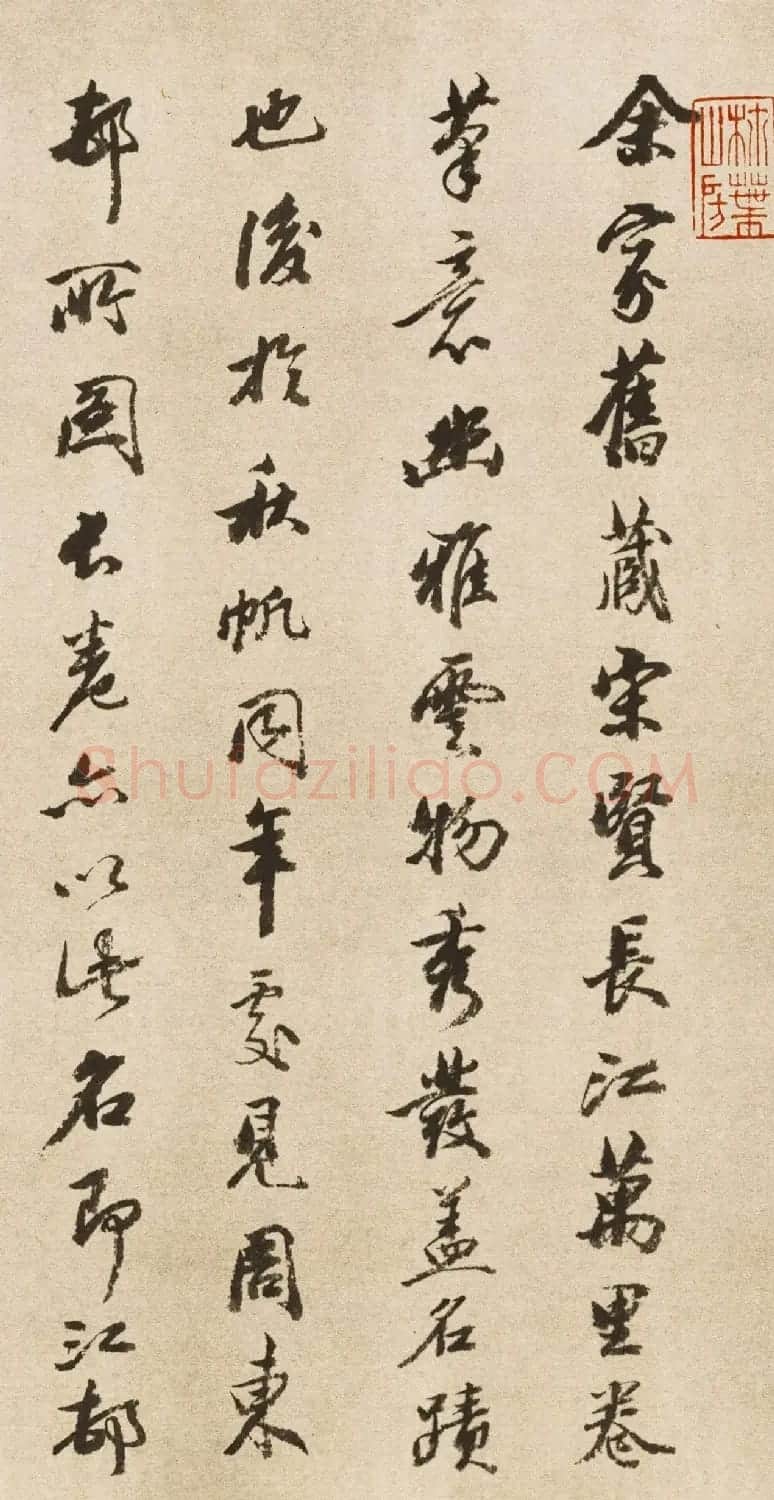 余家舊藏宋賢長江萬里卷
筆意幽雅雲物秀發蓋名蹟
也後於秋帆同年處見周東
邨所圖長卷亦以此名即江都
葉山房
Shufaziliao.COM